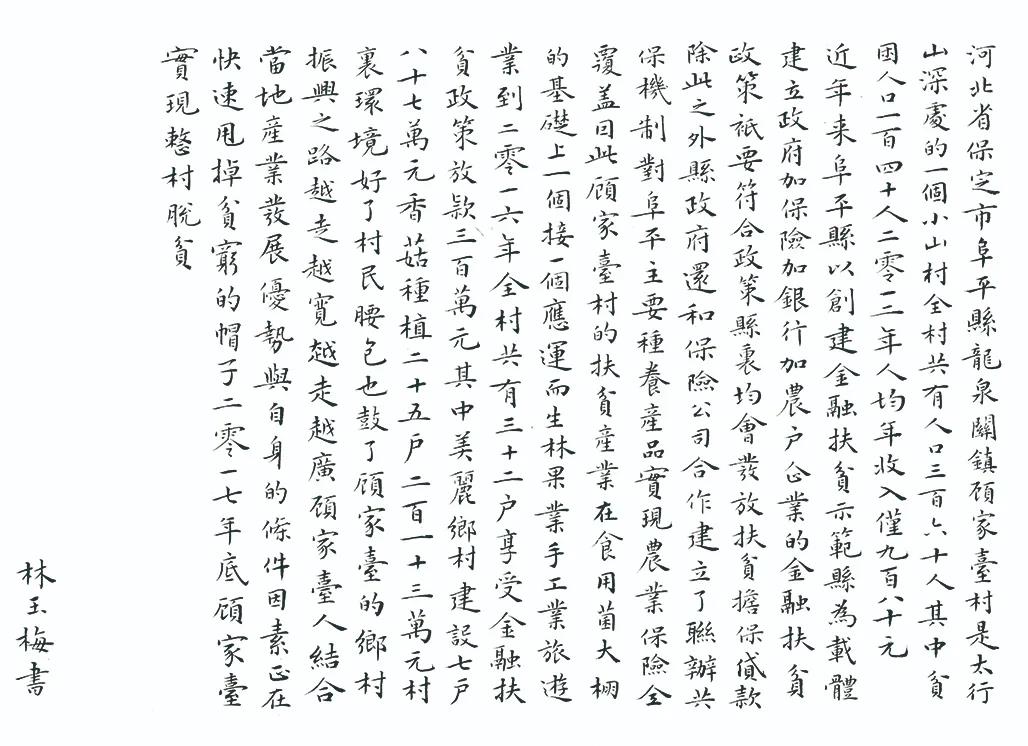 河北省保定市阜平縣龍泉關鎮顧家臺村是太行
山深處的一個小山村全村共有人口三百六十人其中貧
困人口一百四十人二零一三年人均年收入僅九百八十元
近年来阜平縣以創建金融扶貧示範縣為載體
建立政府加保險加銀行加農户企業的金融扶貧
政策衹要符合政策縣裏均會發放扶貧擔保貸款
除此之外縣政府還和保險公司合作建立了聯辦共
保機制對阜平主要種養産品實現農業保險全
覆盖因此顧家臺村的扶貧産業在食用菌大棚
的基礎上一個接一個應運而生林果業手工業旅遊
業到二零一六年全村共有三十二户享受金融扶
貧政策放款三百萬元其中美麗鄉村建設七户
八十七萬元香菇種植二十五户二百一十三萬元村
裏環境好了村民腰包也鼓了顧家臺的鄉村
振興之路越走越寬越走越廣顧家臺人結合
當地産業發展優勢與自身的條件因素正在
快速甩掉貧窮的帽子二零一七年底顧家臺
實現整村脱貧
林玉梅書